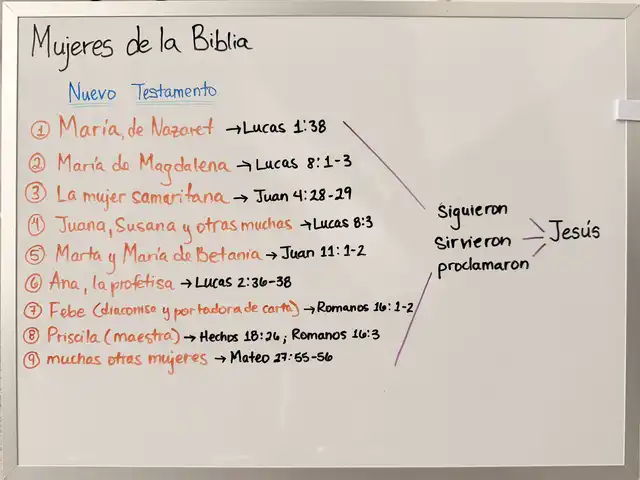 Mujeres de la Biblia
Nuevo Testamento
① María, de Nazaret → Lucas 1:38
② María de Magdalena → Lucas 8:1-3
③ La mujer samaritana → Juan 4:28-29
④ Juana, Susana y otras muchas → Lucas 8:3
⑤ Marta y María de Betania → Juan 11:1-2
⑥ Ana, la profetisa → Lucas 2:36-38
⑦ Febe (diaconisa y portadora de carta) → Romanos 16:1-2
⑧ Priscila (maestra) → Hechos 18:26; Romanos 16:3
⑨ muchas otras mujeres → Mateo 27:55-56
siguieron
sirvieron
proclamaron
Jesús